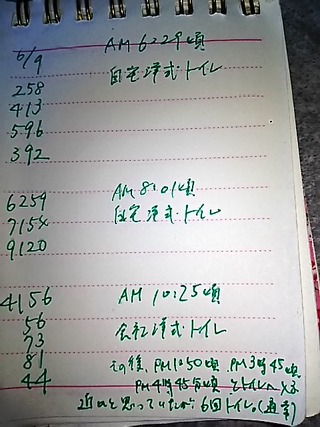 6/9 AM 6:29頃
258 自宅洋式トイレ
413
596
392
6259 AM 8:01頃
715× 自宅洋式トイレ
9120
4156 AM 10:25頃
56
73 会社洋式トイレ
81 その後、PM1:50頃、PM3時45頃
44 PM4時45分頃とトイレへ
近いと思っていたが、6回トイレ。(通常)